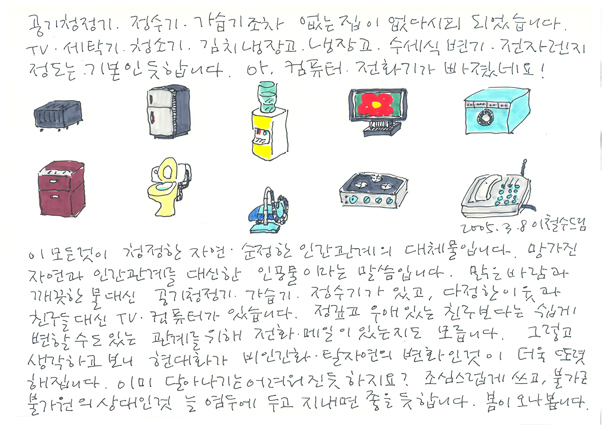 공기청정기. 정수기. 가습기조차 없는 집이 없다시피 되었습니다.
TV. 세탁기. 청소기. 김치냉장고. 냉장고. 수세식 변기. 전자렌지
정도는 기본인 듯합니다. 아, 컴퓨터. 전화기가 빠졌네요!
2005.3.8 이철수드림
이 모든것이 청정한 자연. 순정한 인간관계의 대체물입니다. 망가진
자연과 인간관계를 대신한 인공물이라는 말씀입니다. 맑은 바람과
깨끗한 물 대신 공기청정기. 가습기. 정수기가 있고, 다정한 이웃과
친구들 대신 TV. 컴퓨터가 있습니다. 정깊고 우애있는 친구보다는 쉽게
변할 수도 있는 관계를 위해 전화. 메일이 있는지도 모릅니다. 그렇고
생각하고 보니 현대화가 비인간화. 탈자연의 변화인것이 더욱 또렷
해집니다. 이미 달아나기는 어려워진듯 하지요? 조심스럽게 쓰고,
불가원의 상대인것 늘 염두에 두고 지내면 좋을 듯합니다. 봄이 오나봅니다.